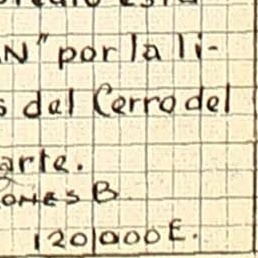 N" por la li-
s del Cerro del
arte.
ONES B
120/000 E.